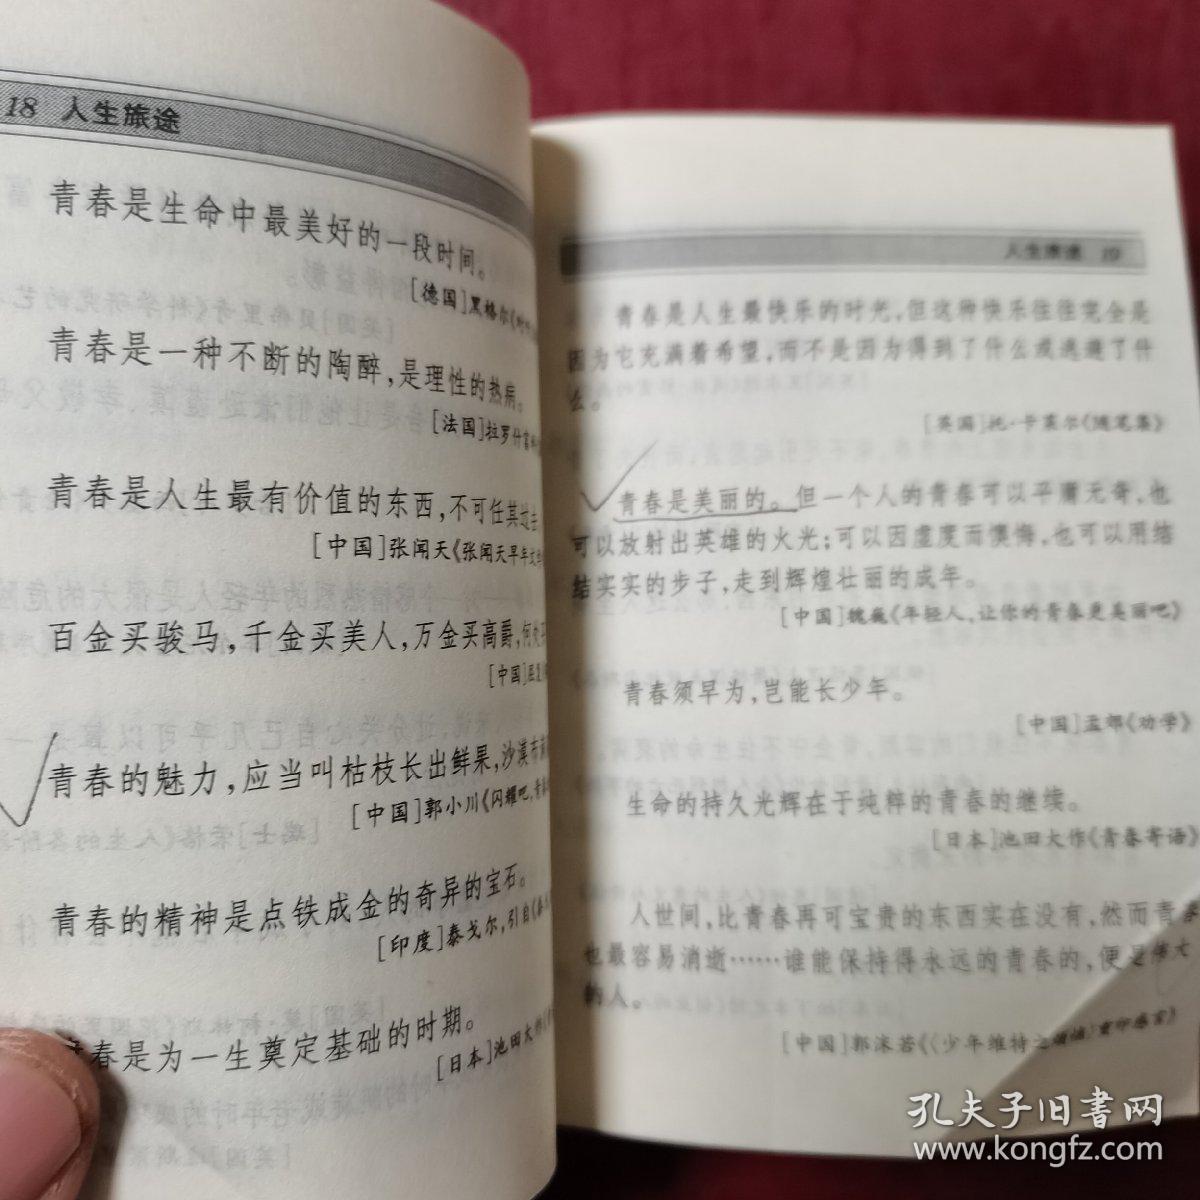 18 人生旅途
青春是生命中最美好的一段时间。
[德国]黑格尔《
青春是一种不断的陶醉，是理性的热病。
[法国]拉罗什富科
青春是人生最有价值的东西，不可任其过去
[中国]张闻天《张闻天早年文
百金买骏马，千金买美人，万金买高爵，何处
[中国]屈复
青春的魅力，应当叫枯枝长出鲜果，沙漠布满
[中国]郭小川《闪耀吧，青春
青春的精神是点铁成金的奇异的宝石。
[印度]泰戈尔，引自《泰
春是为一生奠定基础的时期。
[日本]池田大作《
人生旅途 19
青春是人生最快乐的时光，但这种快乐往往完全是
因为它充满着希望，而不是因为得到了什么或逃避了什
么。
[英国]托·卡莱尔《随笔集》
青春是美丽的。但一个人的青春可以平庸无奇，也
可以放射出英雄的火光；可以因虚度而懊悔，也可以用结
结实实的步子，走到辉煌壮丽的成年。
[中国]魏巍《年轻人，让你的青春更美丽吧》
青春须早为，岂能长少年。
[中国]孟郊《劝学》
生命的持久光辉在于纯粹的青春的继续。
[日本]池田大作《青春寄语》
人世间，比青春再可宝贵的东西实在没有，然而青春
也最容易消逝……谁能保持得永远的青春的，便是伟大
的人。
[中国]郭沫若《〈少年维特之烦恼〉重印感言》
孔夫子旧书网
www.kongfz.com